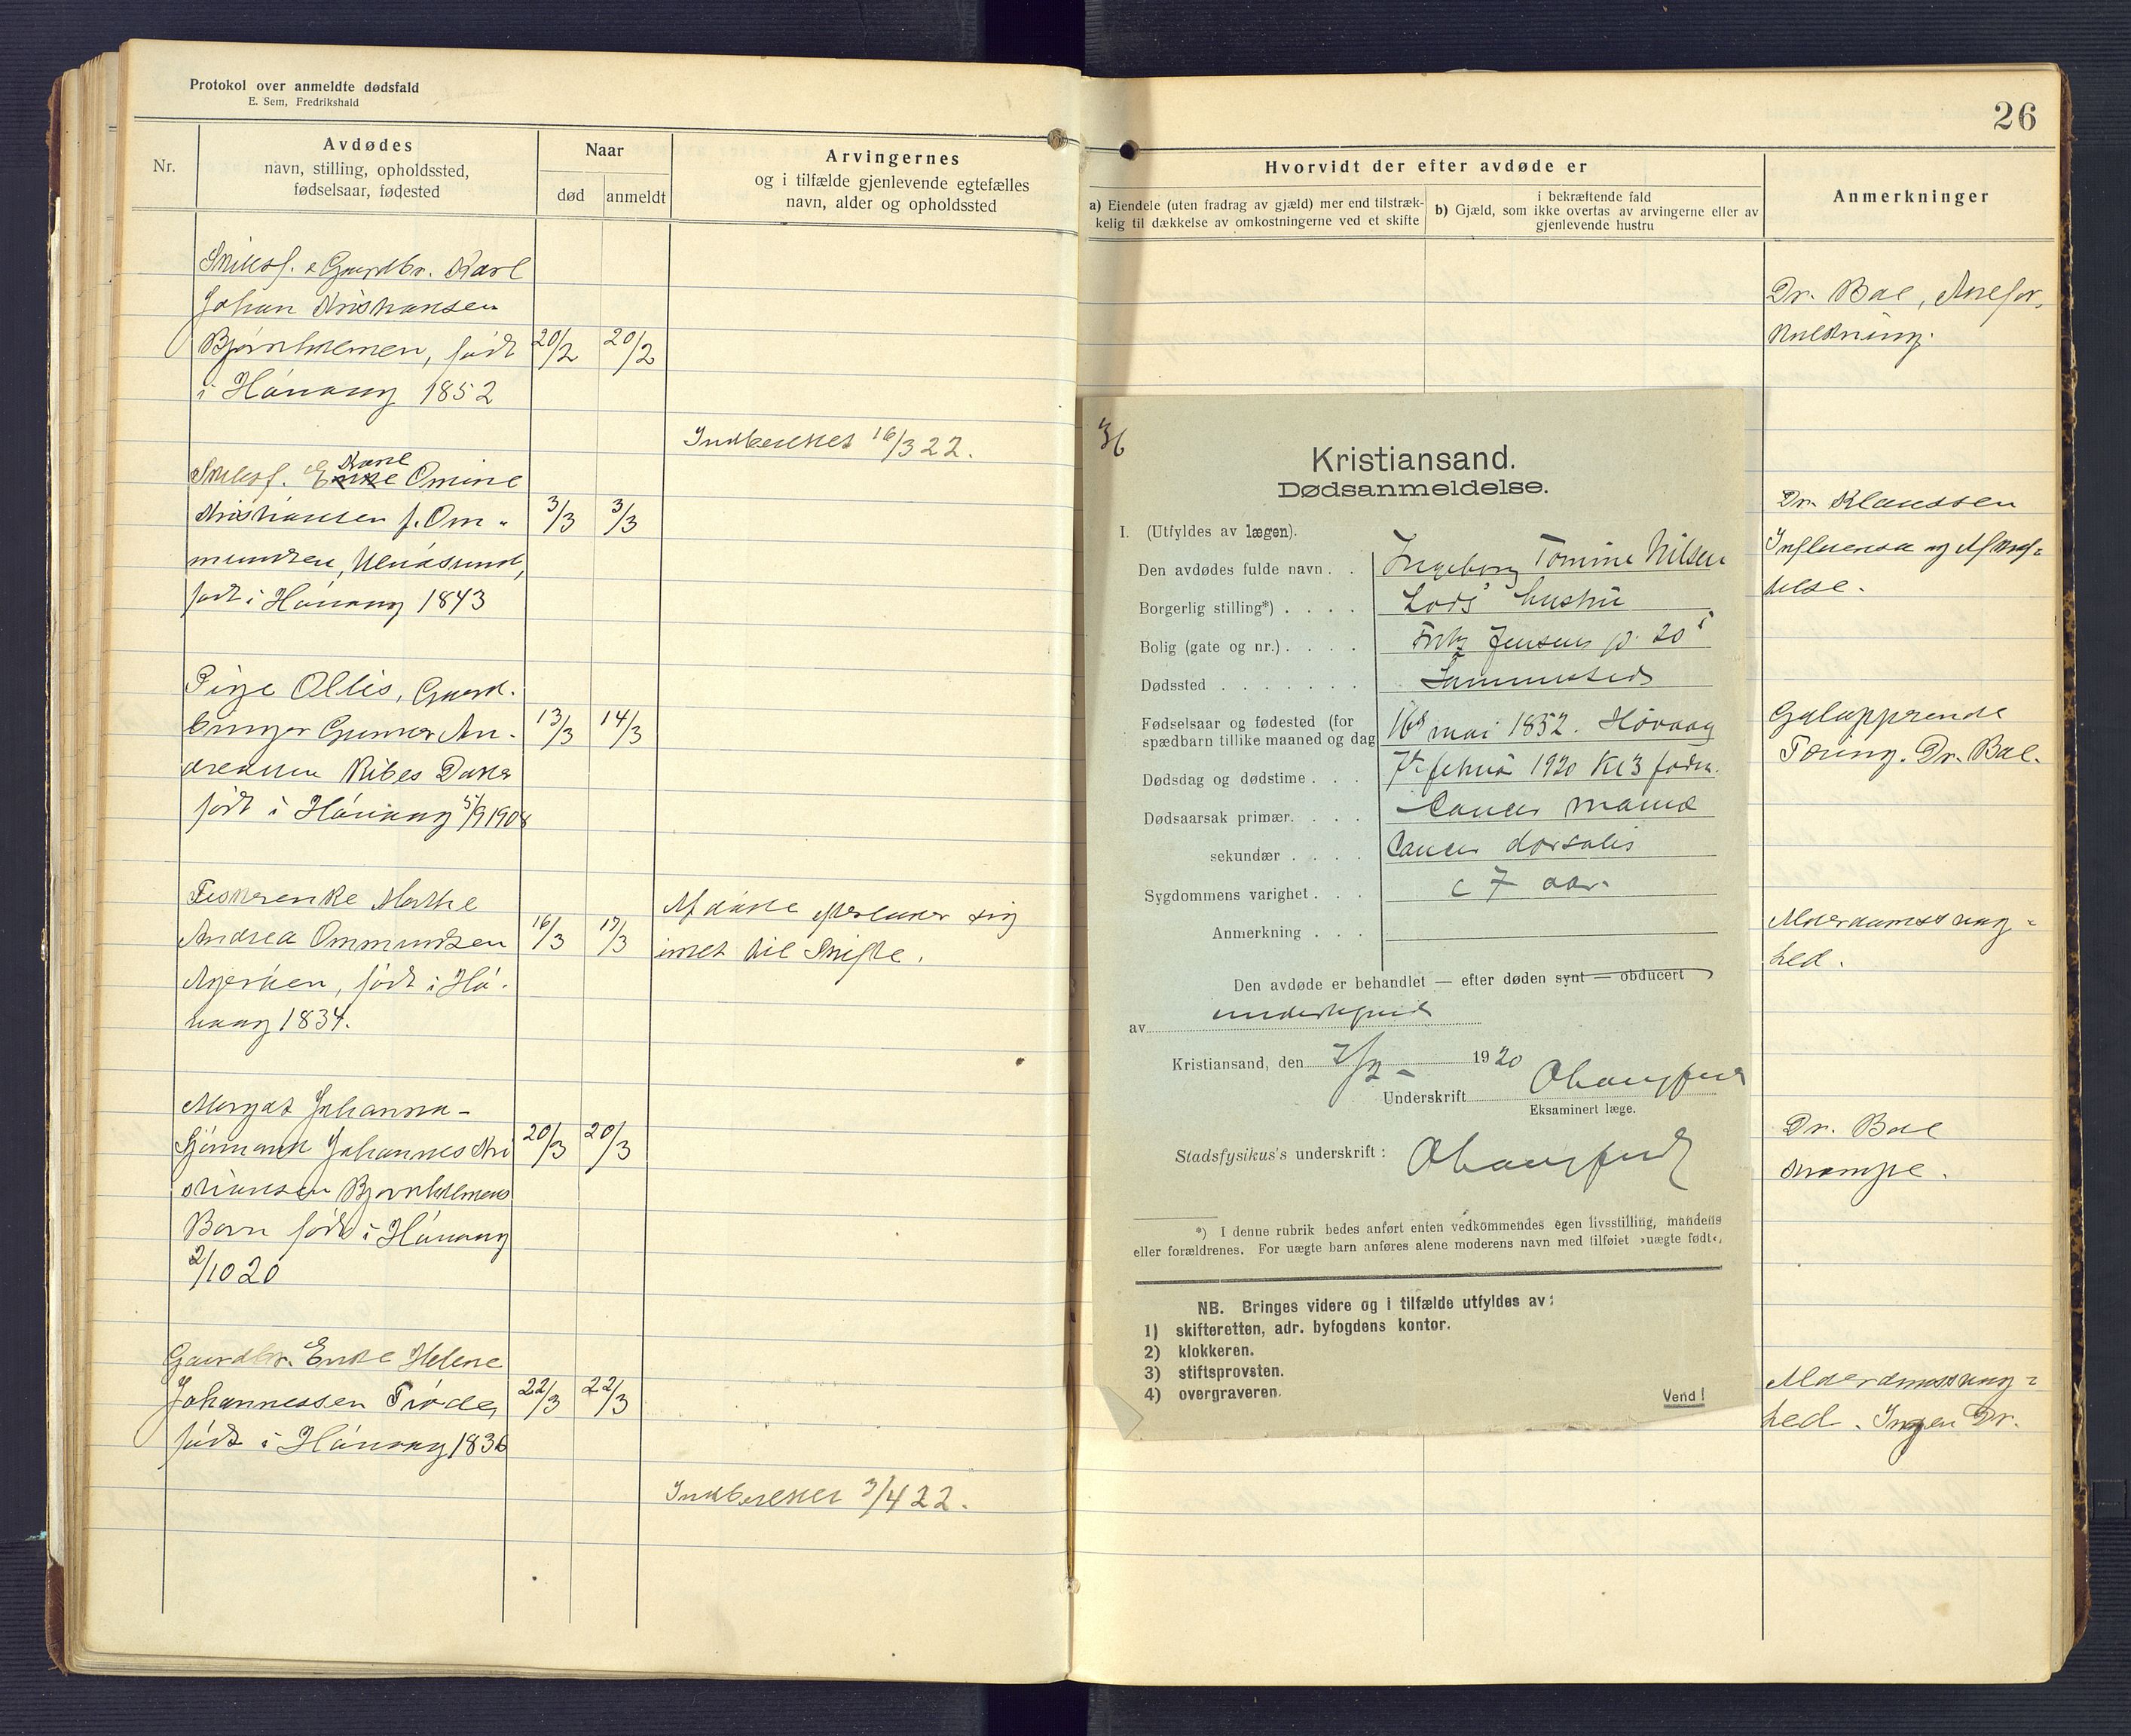 Protokol over anmeldte dødsfald
E. Sem, Fredrikshald
Nr.
Avdødes
navn, stilling, opholdssted,
fødselsaar, fødested
Naar
død
anmeldt
Arvingernes
og i tilfælde gjenlevende egtefælles
navn, alder og opholdssted
Gaardbr. Karl
Johan Kristiansen
Bjørnholmen, født
i Høvaag 1852
20/2
20/2
Indberettet 16/3 22.
Kone
Enke Omine
Kristiansen f. Om-
mundsen, Ulvøsund,
født i Høvaag 1843
3/3
3/3
Pige Ollis, Gaard-
bruger Gunner An-
dreassen Ribes Datter
født i Høvaag 5/9 1908
13/3
14/3
Fiskerenke Marthe
Andrea Ommundsen
født i Hø-
vaag 1834.
16/3
17/3
Afdøde efterlader sig
intet til Skifte.
Margot Johanna -
Sjømand Johannes Kri
stiansen Bjørnholmens
Barn født i Høvaag
2/10 20
20/3
20/3
Gaardbr. Enke Helene
Johannessen Trøde,
født i Høvaag 1836
22/3
22/3
Indberettet 3/4 22.
26
Hvorvidt der efter avdøde er
a) Eiendele (uten fradrag av gjæld) mer end tilstræk-
kelig til dækkelse av omkostningerne ved et skifte
i bekræftende fald
b) Gjæld, som ikke overtas av arvingerne eller av
gjenlevende hustru
Anmerkninger
Dr. Boe, Aarefor-
kalkning.
Dr. Klaussen
Influensa og Afkræf-
telse.
Galopperende
Tæring. Dr. Boe.
Alderdomssvag-
hed.
Dr. Boe
Krampe.
Alderdomssvag-
hed. Ingen Dr.
36
Kristiansand.
Dødsanmeldelse.
I. (Utfyldes av lægen).
Den avdødes fulde navn . . Ingeborg Tomine Nilsen
Borgerlig stilling*) . . . . Lods hustru
Bolig (gate og nr.) . . . . Fritz Jensens p. 20
Dødssted . . . . . . . Sammesteds
Fødselsaar og fødested (for
spædbarn tillike maaned og dag 16de mai 1852. Høvaag
Dødsdag og dødstime . . . 7de februar 1920 Kl 3 form.
Dødsaarsak primær. . . . Cancer mamæ
sekundær . . . . Cancer dorsalis
Sygdommens varighet . . . c 7 aar
Anmerkning . . .
Den avdøde er behandlet — efter døden synt — obducert
av undertegnede
Kristiansand, den 7/2 - 1920
Underskrift
Eksaminert læge.
Stadsfysikus's underskrift :
*) I denne rubrik bedes anført enten vedkommendes egen livsstilling, mandens
eller forældrenes. For uægte barn anføres alene moderens navn med tilføiet »uægte født«,
NB. Bringes videre og i tilfælde utfyldes av:
1) skifteretten, adr. byfogdens kontor.
2) klokkeren.
3) stiftsprovsten.
4) overgraveren.
Vend!